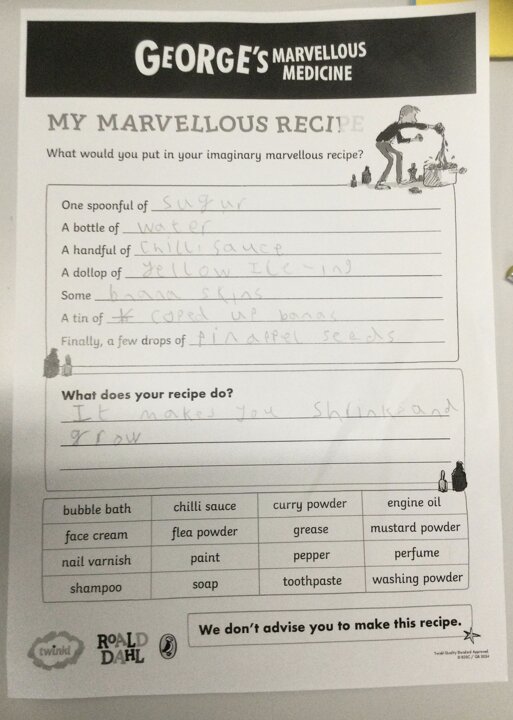 GEORGE'S MARVELLOUS MEDICINE
MY MARVELLOUS RECIPE
What would you put in your imaginary marvellous recipe?
One spoonful of sugur
A bottle of water
A handful of chilli sauce
A dollop of yellow ice-ing
Some bnana skins
A tin of coped up banas
Finally, a few drops of pinappel seeds
What does your recipe do?
It makes you shrink and
grow
bubble bath chilli sauce curry powder engine oil
face cream flea powder grease mustard powder
nail varnish paint pepper perfume
shampoo soap toothpaste washing powder
We don't advise you to make this recipe.
twinkl
ROALD DAHL